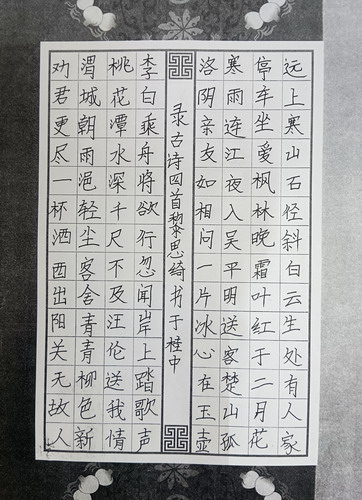 远上寒山石径斜白云生处有人家
停车坐爱枫林晚霜叶红于二月花
寒雨连江夜入吴平明送客楚山孤
洛阴亲友如相问一片冰心在玉壶
录古诗四首黎思绮书于桂中
李白乘舟将欲行忽闻岸上踏歌声
桃花潭水深千尺不及汪伦送我情
渭城朝雨浥轻尘客舍青青柳色新
劝君更尽一杯酒西出阳关无故人